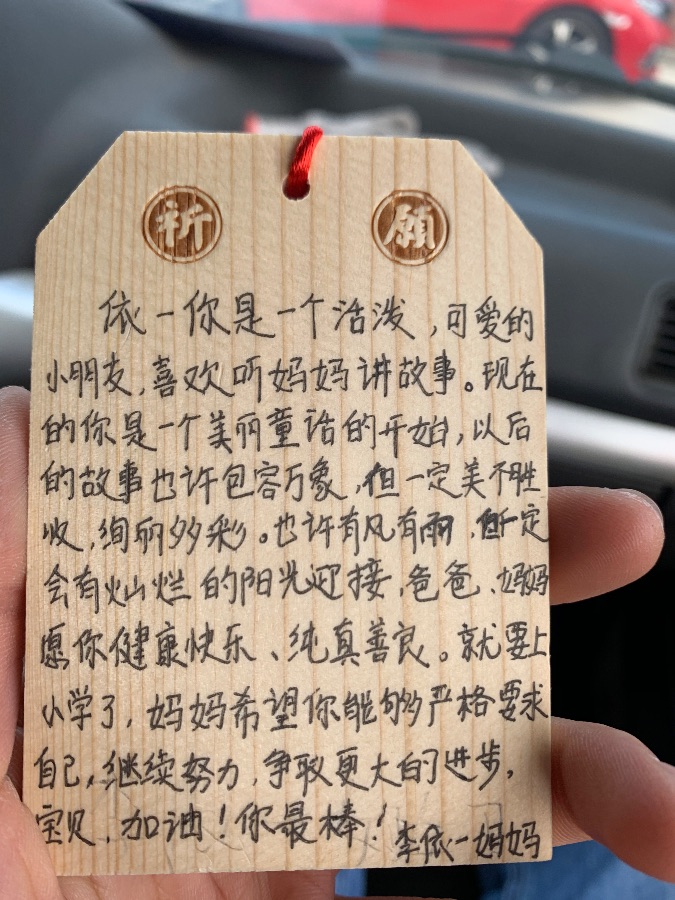 祈 願
依一你是一个活泼,可爱的
小朋友,喜欢听妈妈讲故事。现在
的你是一个美丽童话的开始,以后
的故事也许包容万象,但一定美不胜
收,绚丽多彩。也许有风有雨,但一定
会有灿烂的阳光迎接,爸爸、妈妈
愿你健康快乐、纯真善良。就要上
小学了,妈妈希望你能够严格要求
自己,继续努力,争取更大的进步,
宝贝,加油!你最棒!
李依一妈妈